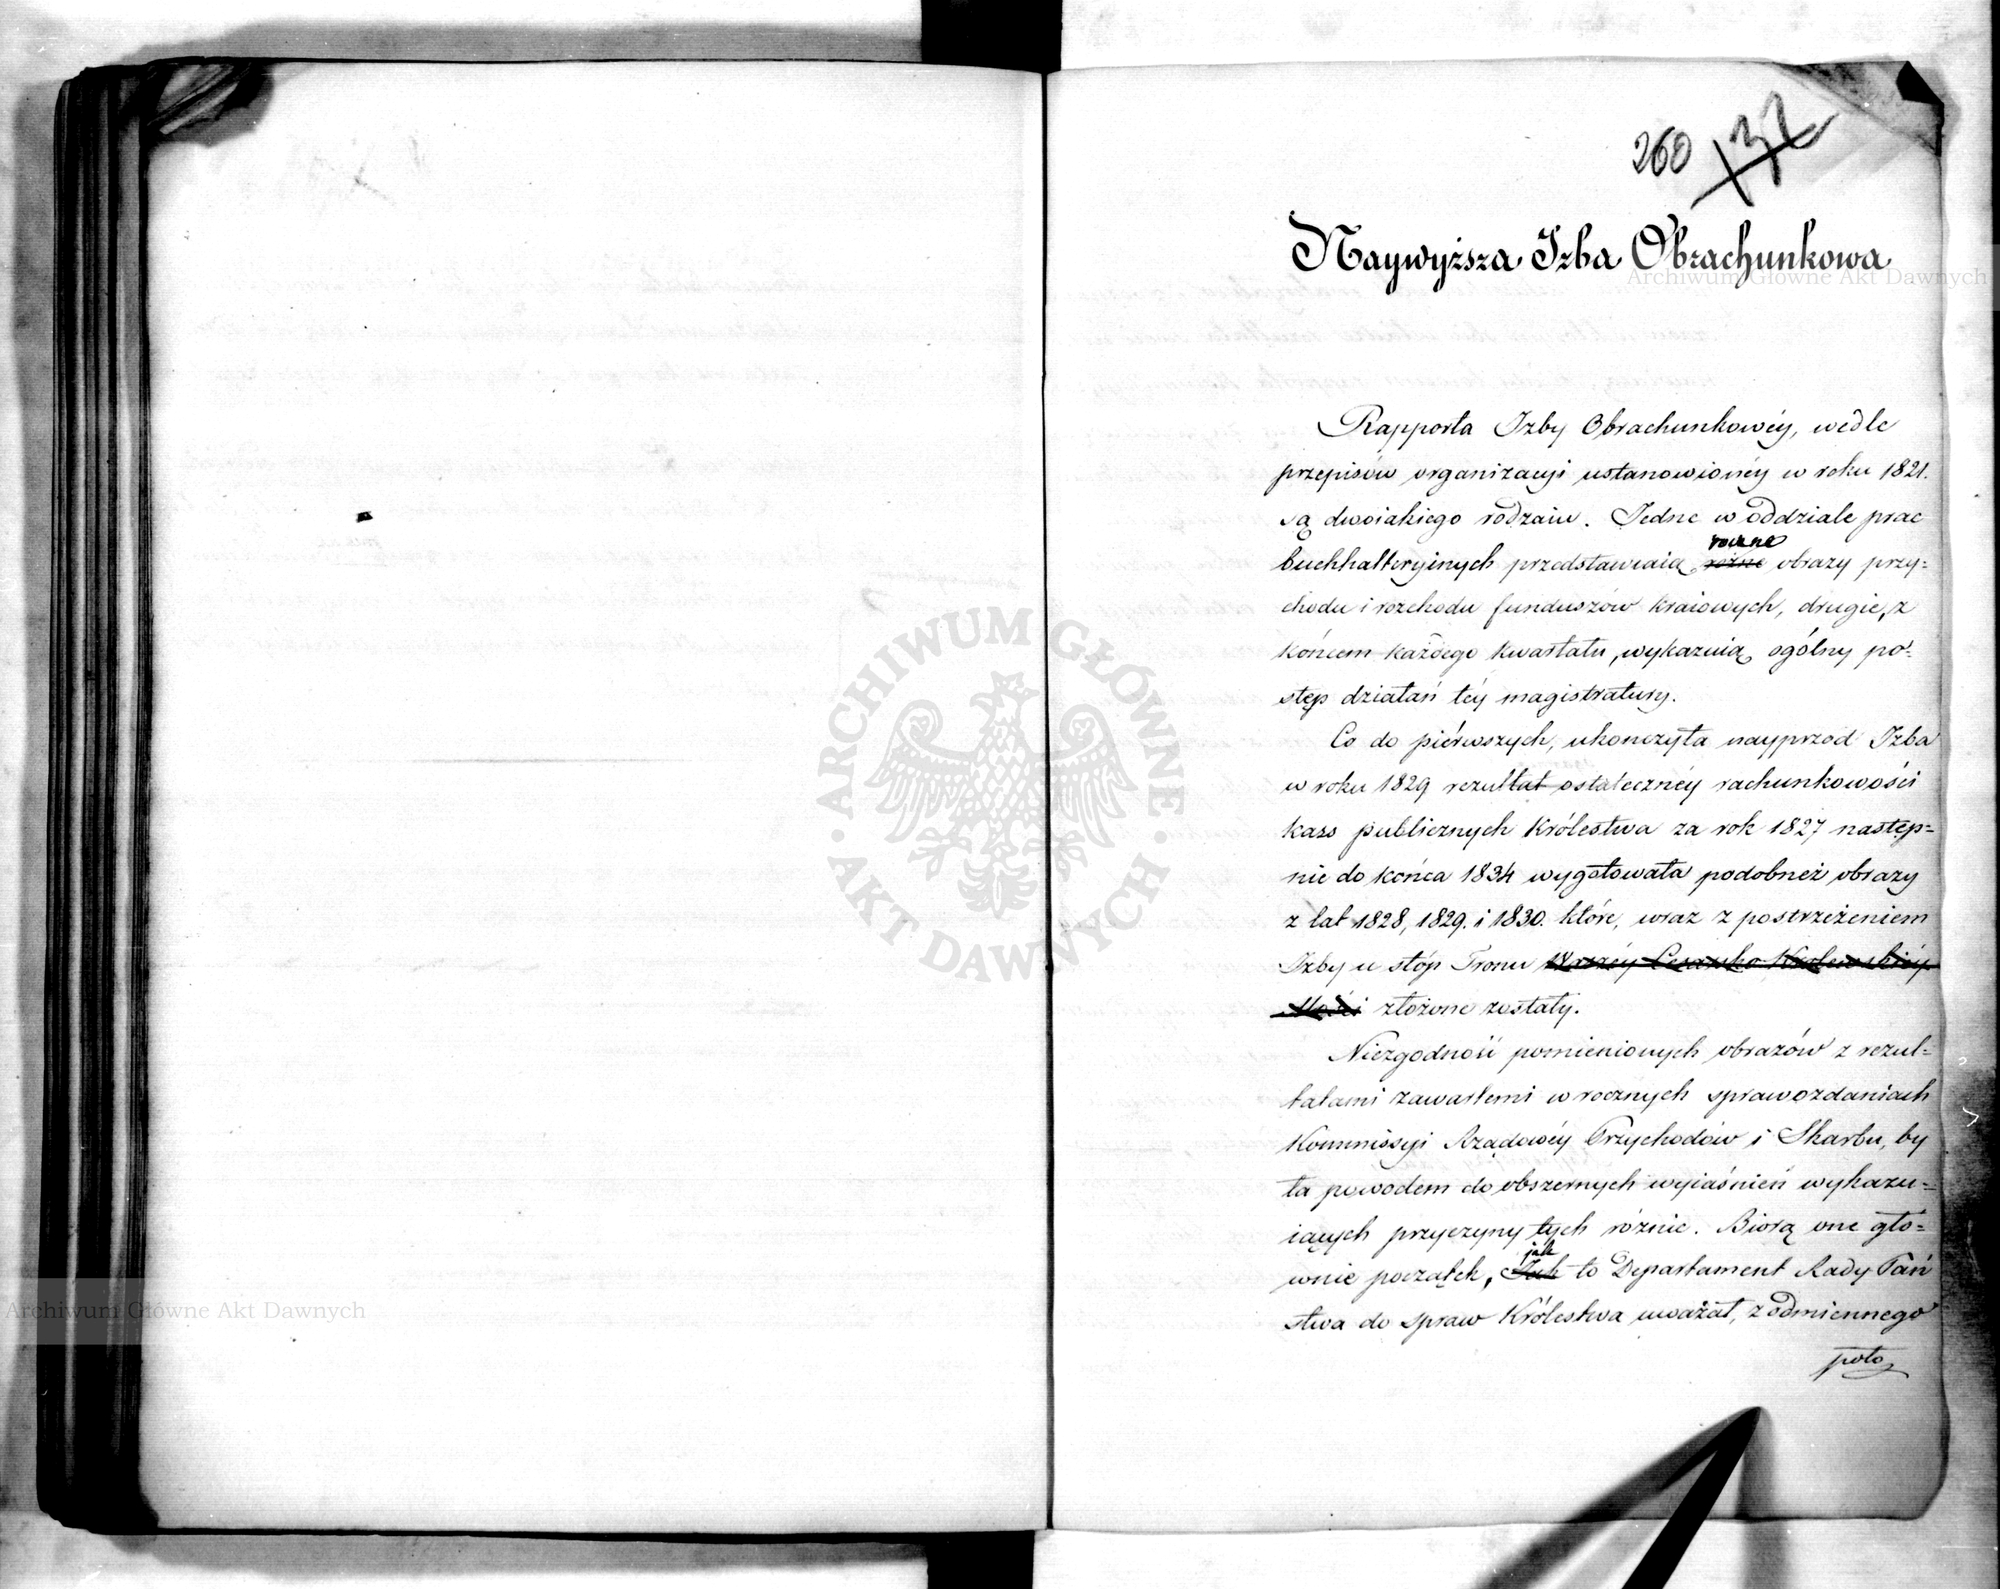 260 137
Naywyższa Izba Obrachunkowa
Archiwum Główne Akt Dawnych
Rapporta Izby Obrachunkowéy, wedle
przepisów organizacyi ustanowionéy w roku 1821.
są dwoiakiego rodzaiu. Jedne w oddziale prac
roczne
buchhalteryinych przedstawiaią różne obrazy przy-
chodu i rozchodu funduszów kraiowych, drugie, z
końcem każdego kwartału, wykazuią ogólny po-
stęp działań téy magistratury.
Co do piérwszych, ukończyła nayprzód Izba
w roku 1829 rezultat ostatecznéy rachunkowości
kass publicznych Królestwa za rok 1827 następ-
nie do końca 1834 wygotowała podobneż obrazy
z lat 1828, 1829. i 1830. które, wraz z postrzeżeniem
Izby u stóp Tronu Waszéy Cesarsko Królewskiéy
Mości złożone zostały.
Niezgodność pomienionych obrazów z rezul-
tatami zawartemi w rocznych sprawozdaniach
Kommissyi Rządowéy Przychodów i Skarbu, by
ła powodem do obszernych wyiaśnień wykazu-
iących przyczyny tych różnic. Biorą one głó-
jak
wnie początek, Jak to Departament Rady Pań
stwa do spraw Królestwa uważał, z odmiennego
poło
ARCHIWUM GŁÓWNE
AKT DAWNYCH
Archiwum Główne Akt Dawnych